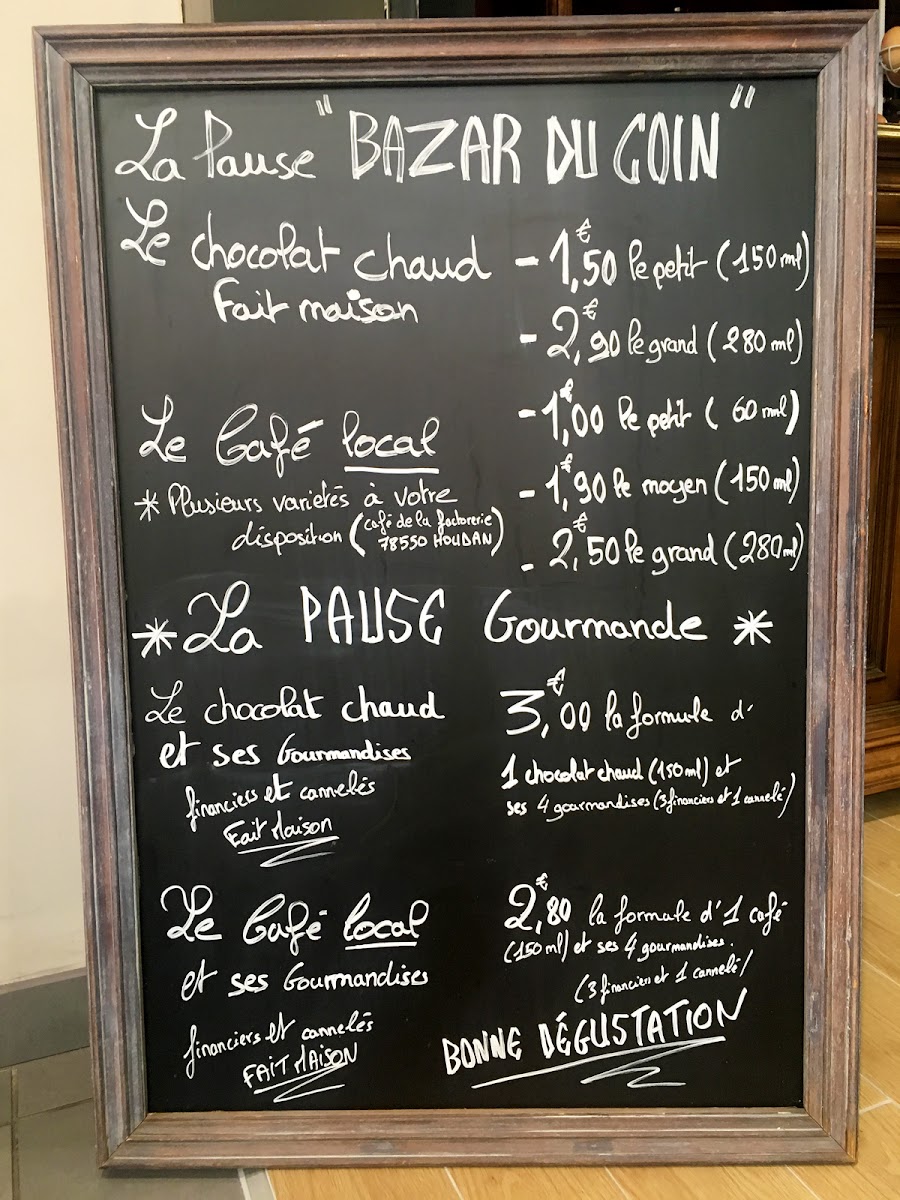 La Pause "BAZAR DU COIN"
Le chocolat chaud
Fait maison
- 1,50€ le petit (150 ml)
- 2,90€ le grand (280 ml)
Le Café local
* Plusieurs varietés à votre
disposition (café de la factorerie
78550 HOUDAN)
- 1,00€ le petit (60 ml)
- 1,90€ le moyen (150 ml)
- 2,50€ le grand (280 ml)
* La PAUSE Gourmande *
Le chocolat chaud
et ses Gourmandises
financiers et cannelés
Fait Maison
3,00€ la formule d'
1 chocolat chaud (150 ml) et
ses 4 gourmandises (3 financiers et 1 cannelé)
Le Café local
et ses Gourmandises
financiers et cannelés
FAIT MAISON
2,80€ la formule d'1 café
(150 ml) et ses 4 gourmandises.
(3 financiers et 1 cannelé)
BONNE DÉGUSTATION